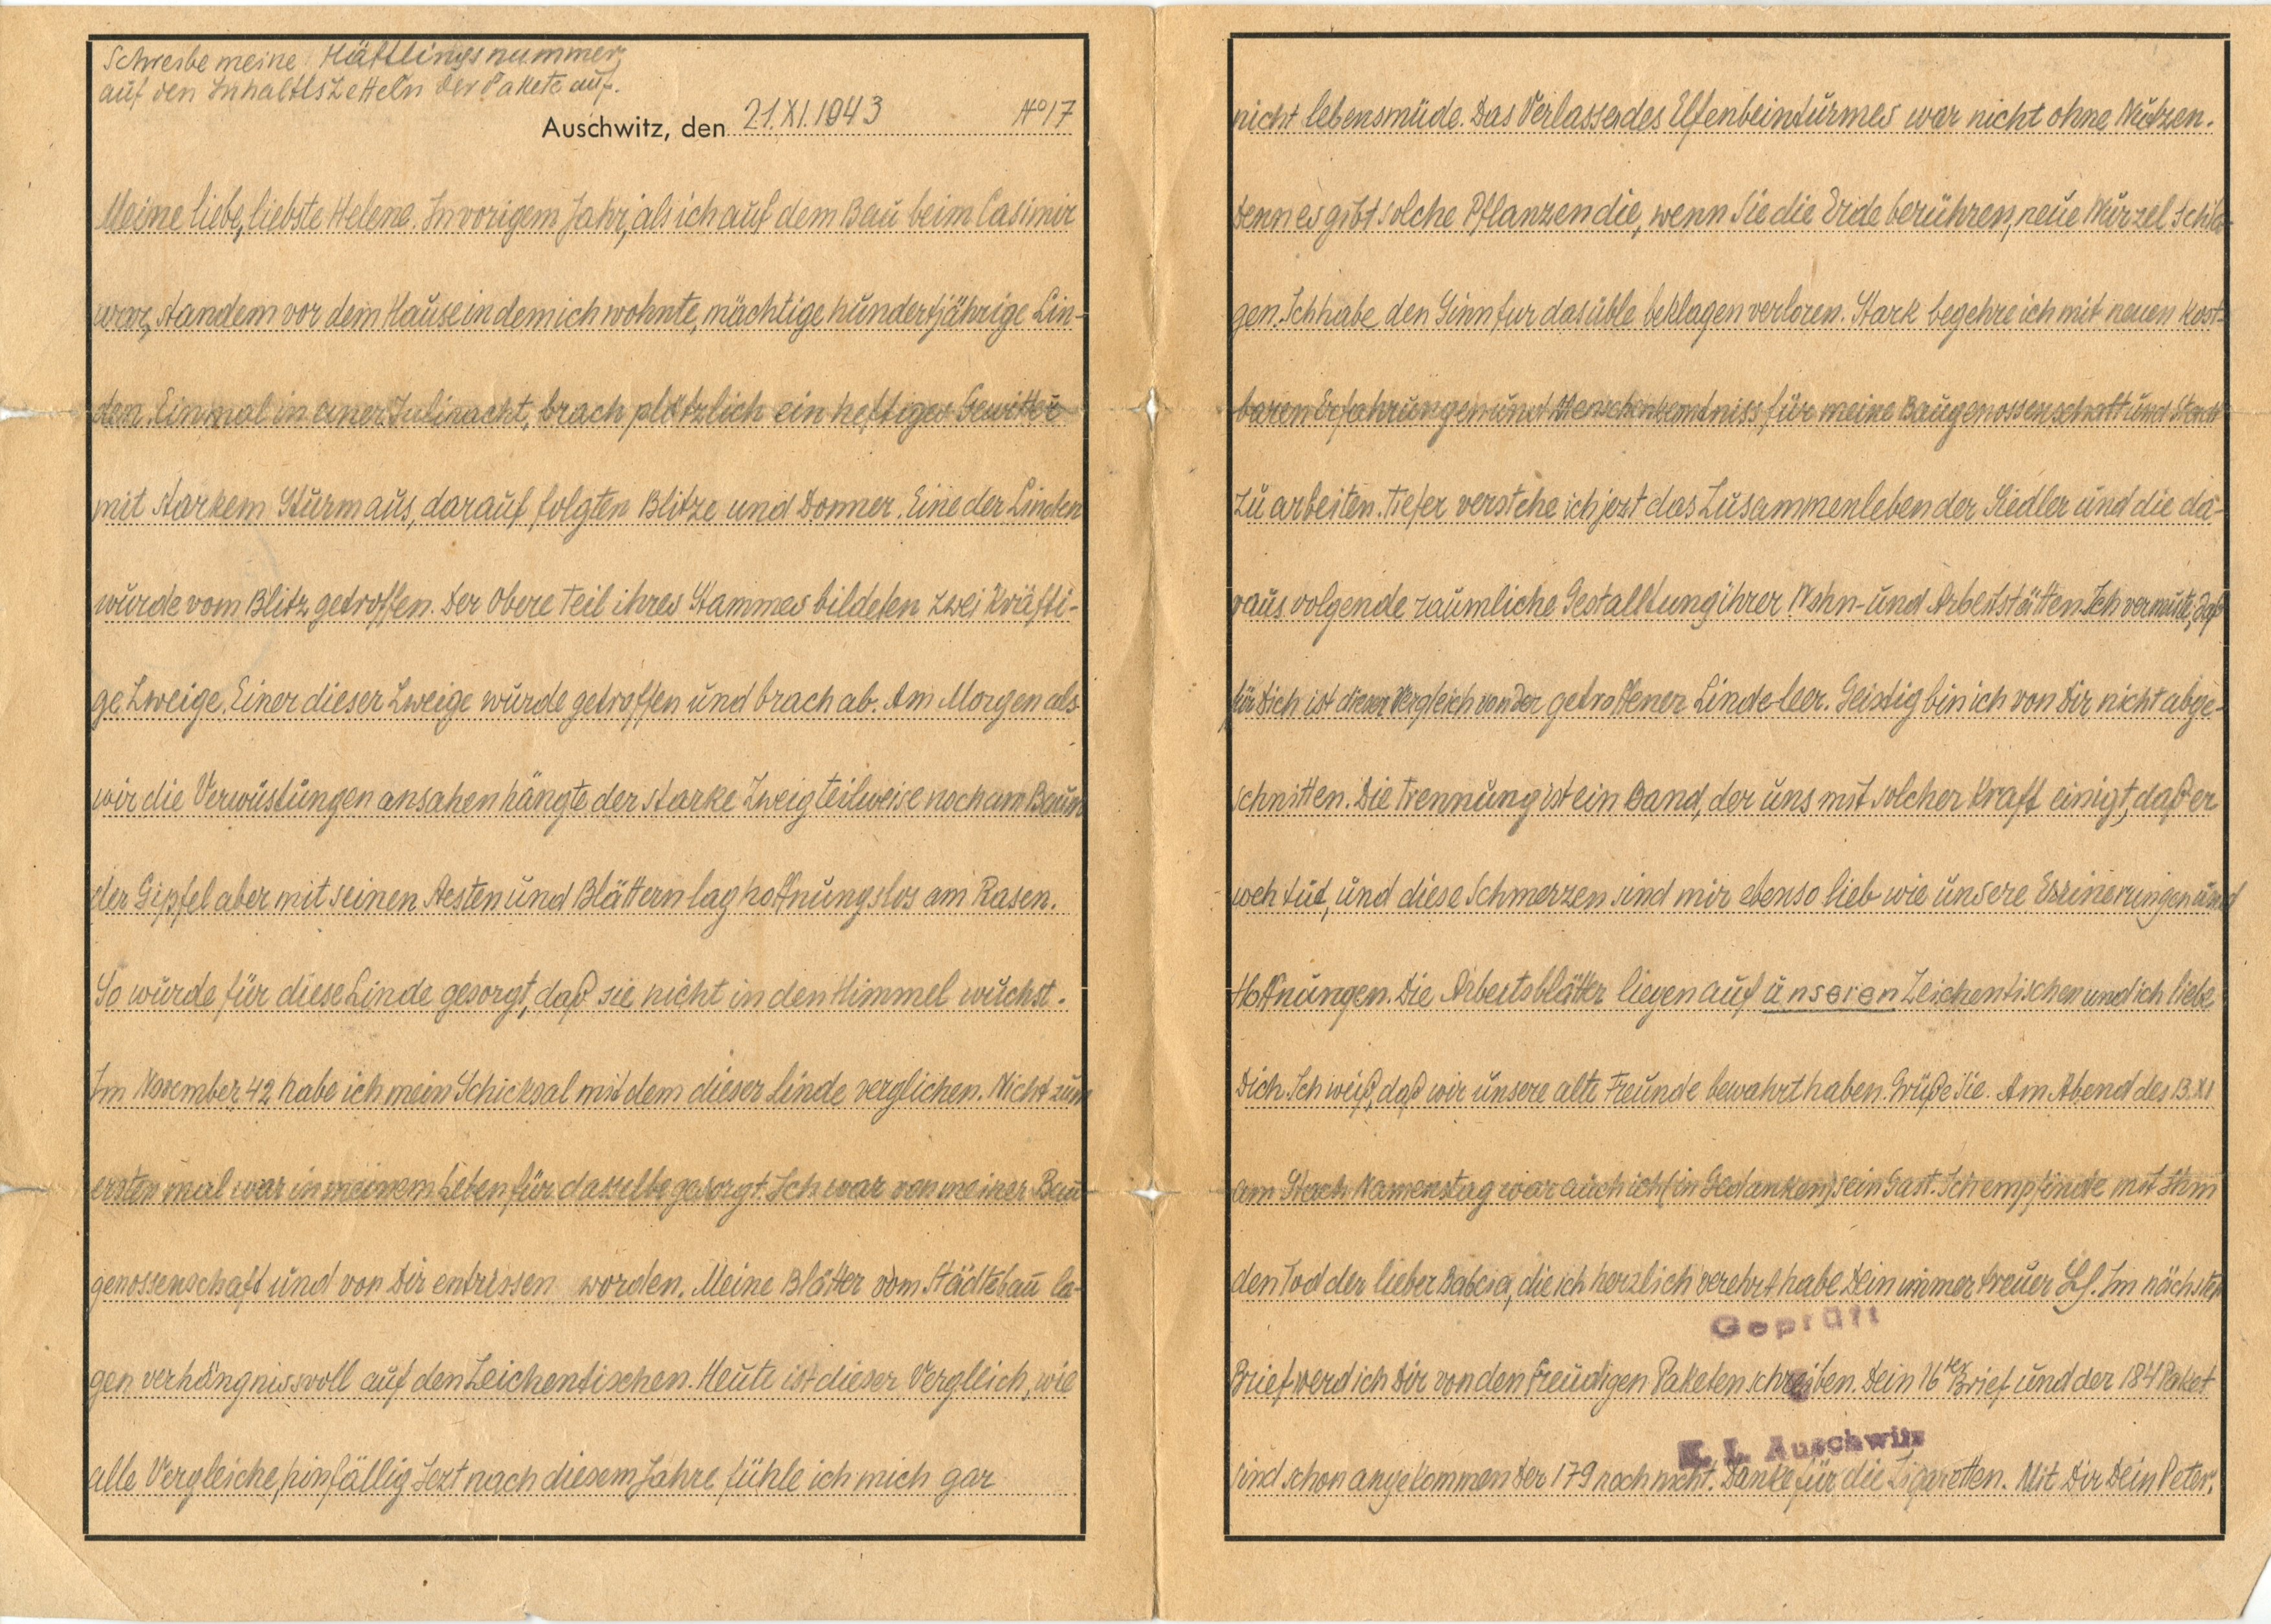 Schreibe meine Häftlingsnummer
auf den Inhalttszetteln der Pakete auf.
Auschwitz, den 21.XI.1943 No 17
Meine liebe, liebste Helene. In vorigem Jahr, als ich auf dem Bau beim Casimir
war, standem vor dem Hause in dem ich wohnte, mächtige hundertjährige Lin-
den. Einmal in einer Julinacht, brach plötzlich ein heftiger Gewitter
mit starkem Sturm aus, darauf folgten Blitze und Donner. Eine der Linden
wurde vom Blitz getroffen. Der Obere Teil ihres Stammes bildeten zwei kräfti-
ge Zweige. Einer dieser Zweige wurde getroffen und brach ab. Am Morgen als
wir die Verwüstungen ansahen hängte der starke Zweig teilweise noch am Baum
der Gipfel aber mit seinen Aesten und Blättern lag hoffnungslos am Rasen.
So wurde für diese Linde gesorgt, daß sie nicht in den Himmel wuchst.
Im November 42 habe ich mein Schicksal mit dem dieser Linde verglichen. Nicht zum
ersten mal war in meinem Leben für dasselbe gesorgt. Ich war von meiner Bau-
genossenschaft und von Dir entrissen worden. Meine Blätter vom Städtebau la-
gen verhängnissvoll auf den Zeichentischen. Heute ist dieser Vergleich, wie
alle Vergleiche, hinfällig Jezt nach diesem Jahre fühle ich mich gar
nicht lebensmüde. Das Verlassen des Elfenbeinturmes war nicht ohne Nutzen.
denn es gibt solche Pflanzen die, wenn Sie die Erde berühren, neue Wurzel schla-
gen. Ich habe den Sinn fur das üble beklagen verloren. Stark begehre ich mit neuen kost-
baren Erfahrungen und Menschenkentniss für meine Baugenossenschaft und Stadt
zu arbeiten. Tiefer verstehe ich jezt das Zusammenleben der Siedler und die da-
raus volgende raumliche Gestalltung ihrer Wohn- und Arbeitstätten. Ich vermute, daß
für Dich ist dieser Vergleich von der getroffener Linde leer. Geistig bin ich von Dir nicht abge-
schnitten. Die Trennung ist ein Band, der uns mit solcher Kraft einigt, daß er
weh tut, und diese Schmerzen sind mir ebenso lieb wie unsere Erinerungen und
Hoffnungen. Die Arbeitsblätter liegen auf unseren Zeichentischen und ich liebe
Dich. Ich weiß, daß wir unsere alte Freunde bewahrt haben. Grüße Sie. Am Abend des 13.XI
am Stach Namenstag war auch ich (in Gedanken) sein Gast. Ich empfinde mit Ihm
den Tod der lieber Babcia, die ich herzlich verehrt habe Dein immer treuer Im nächsten
Geprüft
Brief werd ich Dir von den freudigen Paketen schreiben. Dein 16ter Brief und der 184 Paket
K. L. Auschwitz
sind schon angekommen Der 179 noch nicht. Danke für die Zigaretten. Mit Dir Dein Peter.